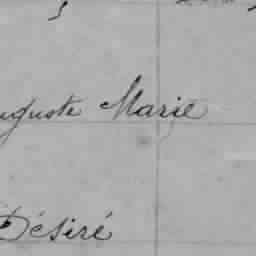 uguste Marie
Désiré